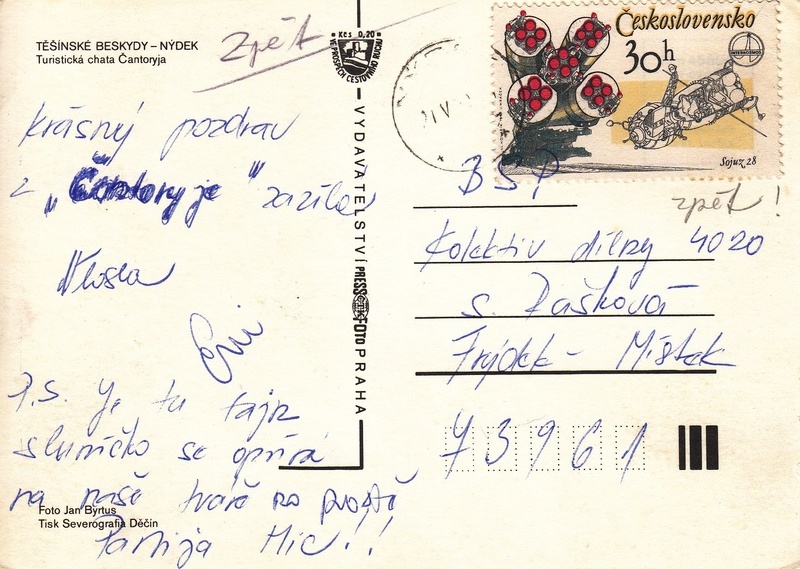 TĚŠÍNSKÉ BESKYDY – NÝDEK
Turistická chata Čantoryja
Zpět
Kčs 0,20
VE PROSPĚCH CESTOVNÍHO RUCHU
Krásný pozdrav
z „Čantoryje" zasílá
Vlosta
P.S. Je tu fajn
sluníčko se opírá
na naše tváře no prostě
Partyja Hic!!
Foto Jan Byrtus
Tisk Severografia Děčín
VYDAVATELSTVÍ PRESSFOTO PRAHA
ČTK
Československo
30h
INTERKOSMOS
Sojuz 28
zpět!
BSP
Kolektiv dílny 4020
s. Dašková
Frýdek - Místek
73961